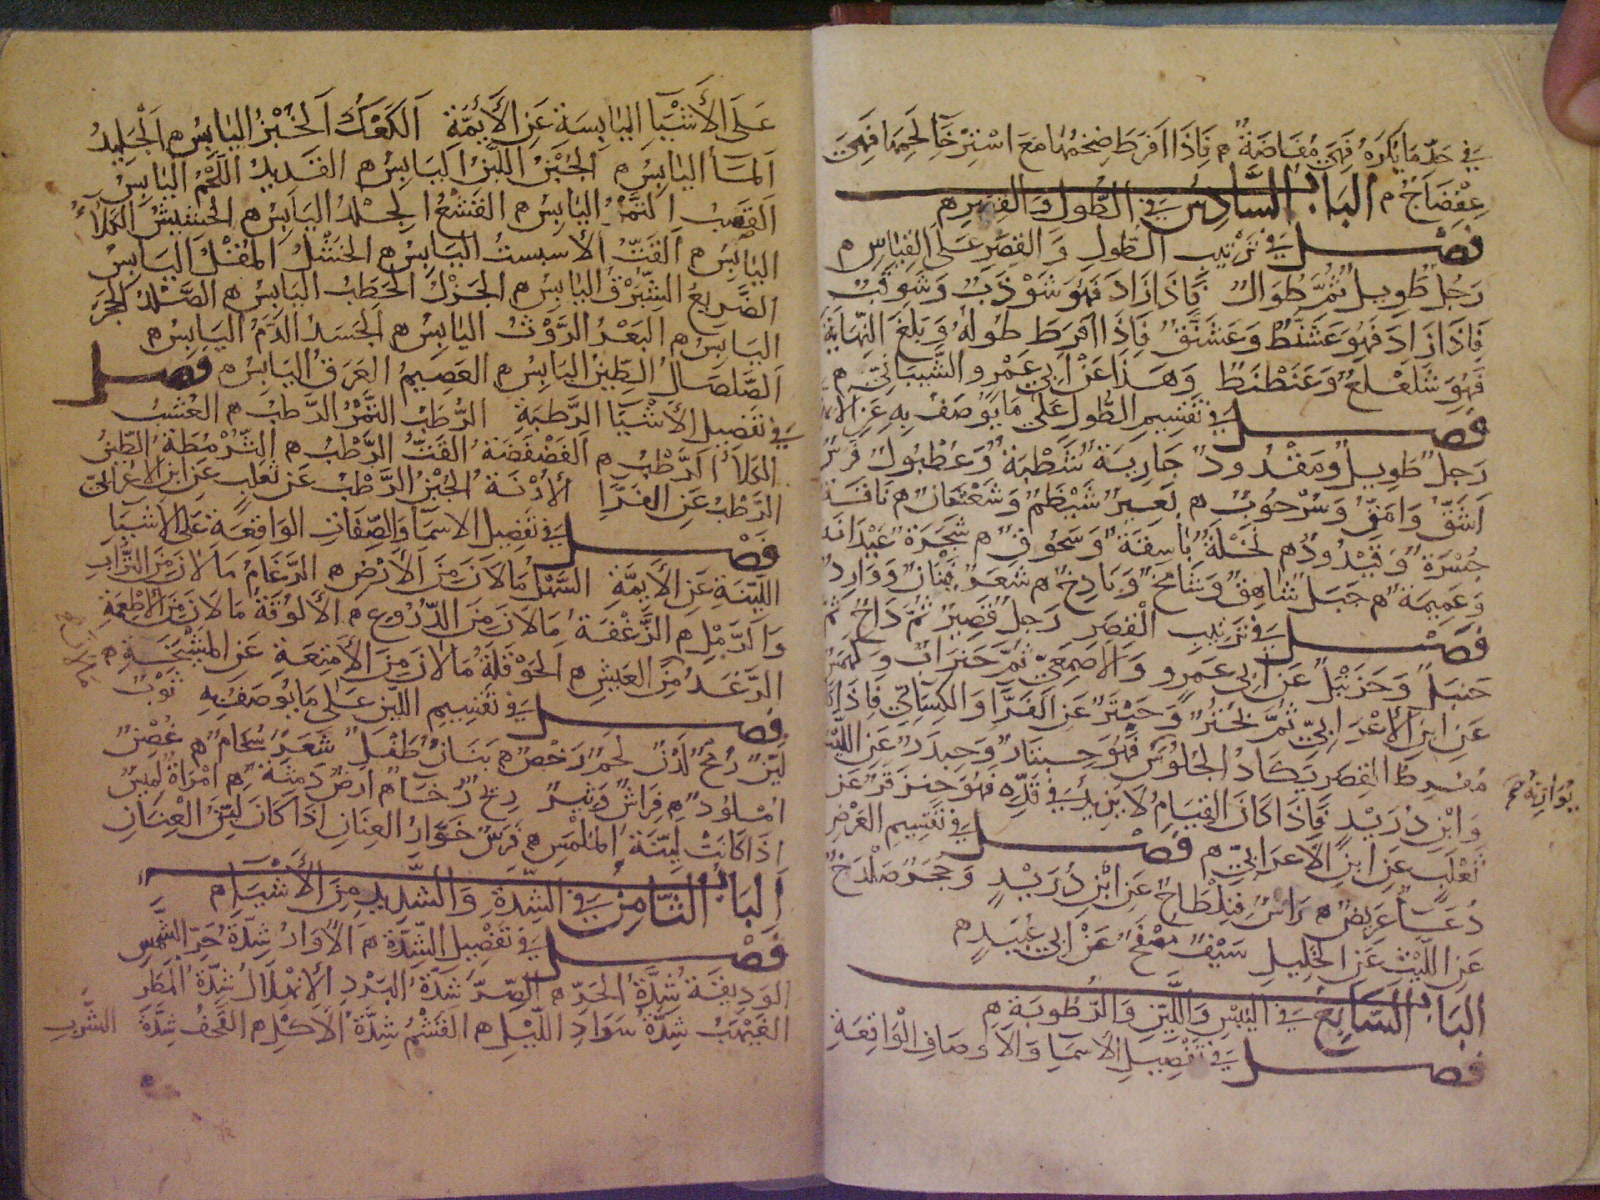 في حد ما يكره فهي مفاضة م فاذا افرط ضخمها مع استرخآ لحمها فهي
عفضاج م الباب السادس في الطول والقصر م
فصل في ترتيب الطول والقصر على القياس م
رجل طويل ثم طوال فاذا زاد فهو شوذب وشوقب
فاذا زاد فهو عشنط وعشنق فاذا افرط طوله وبلغ النهاية
فهو شلعلع وعنطنط وهذا عن ابي عمرو الشيباني م
فصل في تقسيم الطول على ما يوصف به عن
رجل طويل ومقدود جارية شطبة وعطبول فرس
اشق وامق وسرحوب م بعير شيظم وشعشعان م ناقة
جسرة وقيدود م نخلة باسقة وسحوق م شجرة عيدانة
وعميمة م جبل شاهق وشامخ وباذخ م شعر فينان ووارد
فصل في ترتيب القصر رجل قصير ثم دحداح ثم
حنبل وحزنبل عن ابي عمرو والاصمعي ثم حنزاب وكهمس
عن ابن الاعرابي ثم بحتر وحبتر عن الفرا والكسائي فاذا كان
مفرط القصر يكاد الجلوس يوازيه فهو حنتار وحيدر عن الليث
وابن دريد فاذا كان القيام لا يزيد في قده فهو حنزقرة عن
ثعلب عن ابن الاعرابي م فصل في تقسيم العرض
دعآ عريض م راس فلطاح عن ابن دريد وحجر صلدح
عن الليث عن الخليل سيف مصفح عن ابي عبيد م
الباب السابع في اليبس واللين والرطوبة م
فصل في تفصيل الاسما والاوصاف الواقعة
على الأشيا اليابسة عن الأئمة الكعك الخبز اليابس م الجليد
المآ اليابس م الجبن اللبن اليابس م القديد اللحم اليابس
القسب التمر اليابس م القشع الجلد اليابس م الحشيش الكلأ
اليابس م القت الاسبست اليابس م الخشل المقل اليابس
الضريع الشبرق اليابس م الجزل الحطب اليابس م الصلد الحجر
اليابس م البعر الروث اليابس م الجسد الدم اليابس م
الصلصال الطين اليابس م العصيم العرق اليابس م فصل
في تفصيل الأشيا الرطبة الرطب التمر الرطب م العشب
الكلأ الرطب م الفصفصة القت الرطب م الثرمطة الطين
الرطب عن الفرا الأرنة الجبن الرطب عن ثعلب عن ابن الاعرابي
فصل في تفصيل الاسما والصفات الواقعة على الاشيا
اللينة عن الايمة السهل ما لان من الأرض م الرغام ما لان من التراب
والرمل م الزغفة ما لان من الدروع م الالوقة ما لان من الاطعمة
الرغد من العيش م الحوقلة ما لان من الأمتعة عن المشيخة م
فصل في تقسيم اللين على ما يوصف به ثوب
لين رمح لدن لحم رخص م بنان طفل شعر سخام م غصن
املود م فراش وثير ريح رخا م ارض دمثة م امرأة لميس
اذا كانت لينة الملمس م فرس خوار العنان اذا كان لين العنان
الباب الثامن في الشدة والشديد من الأشيا م
فصل في تفصيل الشدة م الأوار شدة حر الشمس
الوديقة شدة الحر م الصر شدة البرد الانهلال شدة المطر
الغيهب شدة سواد الليل م القشم شدة الاكل م القحف شدة الشرب